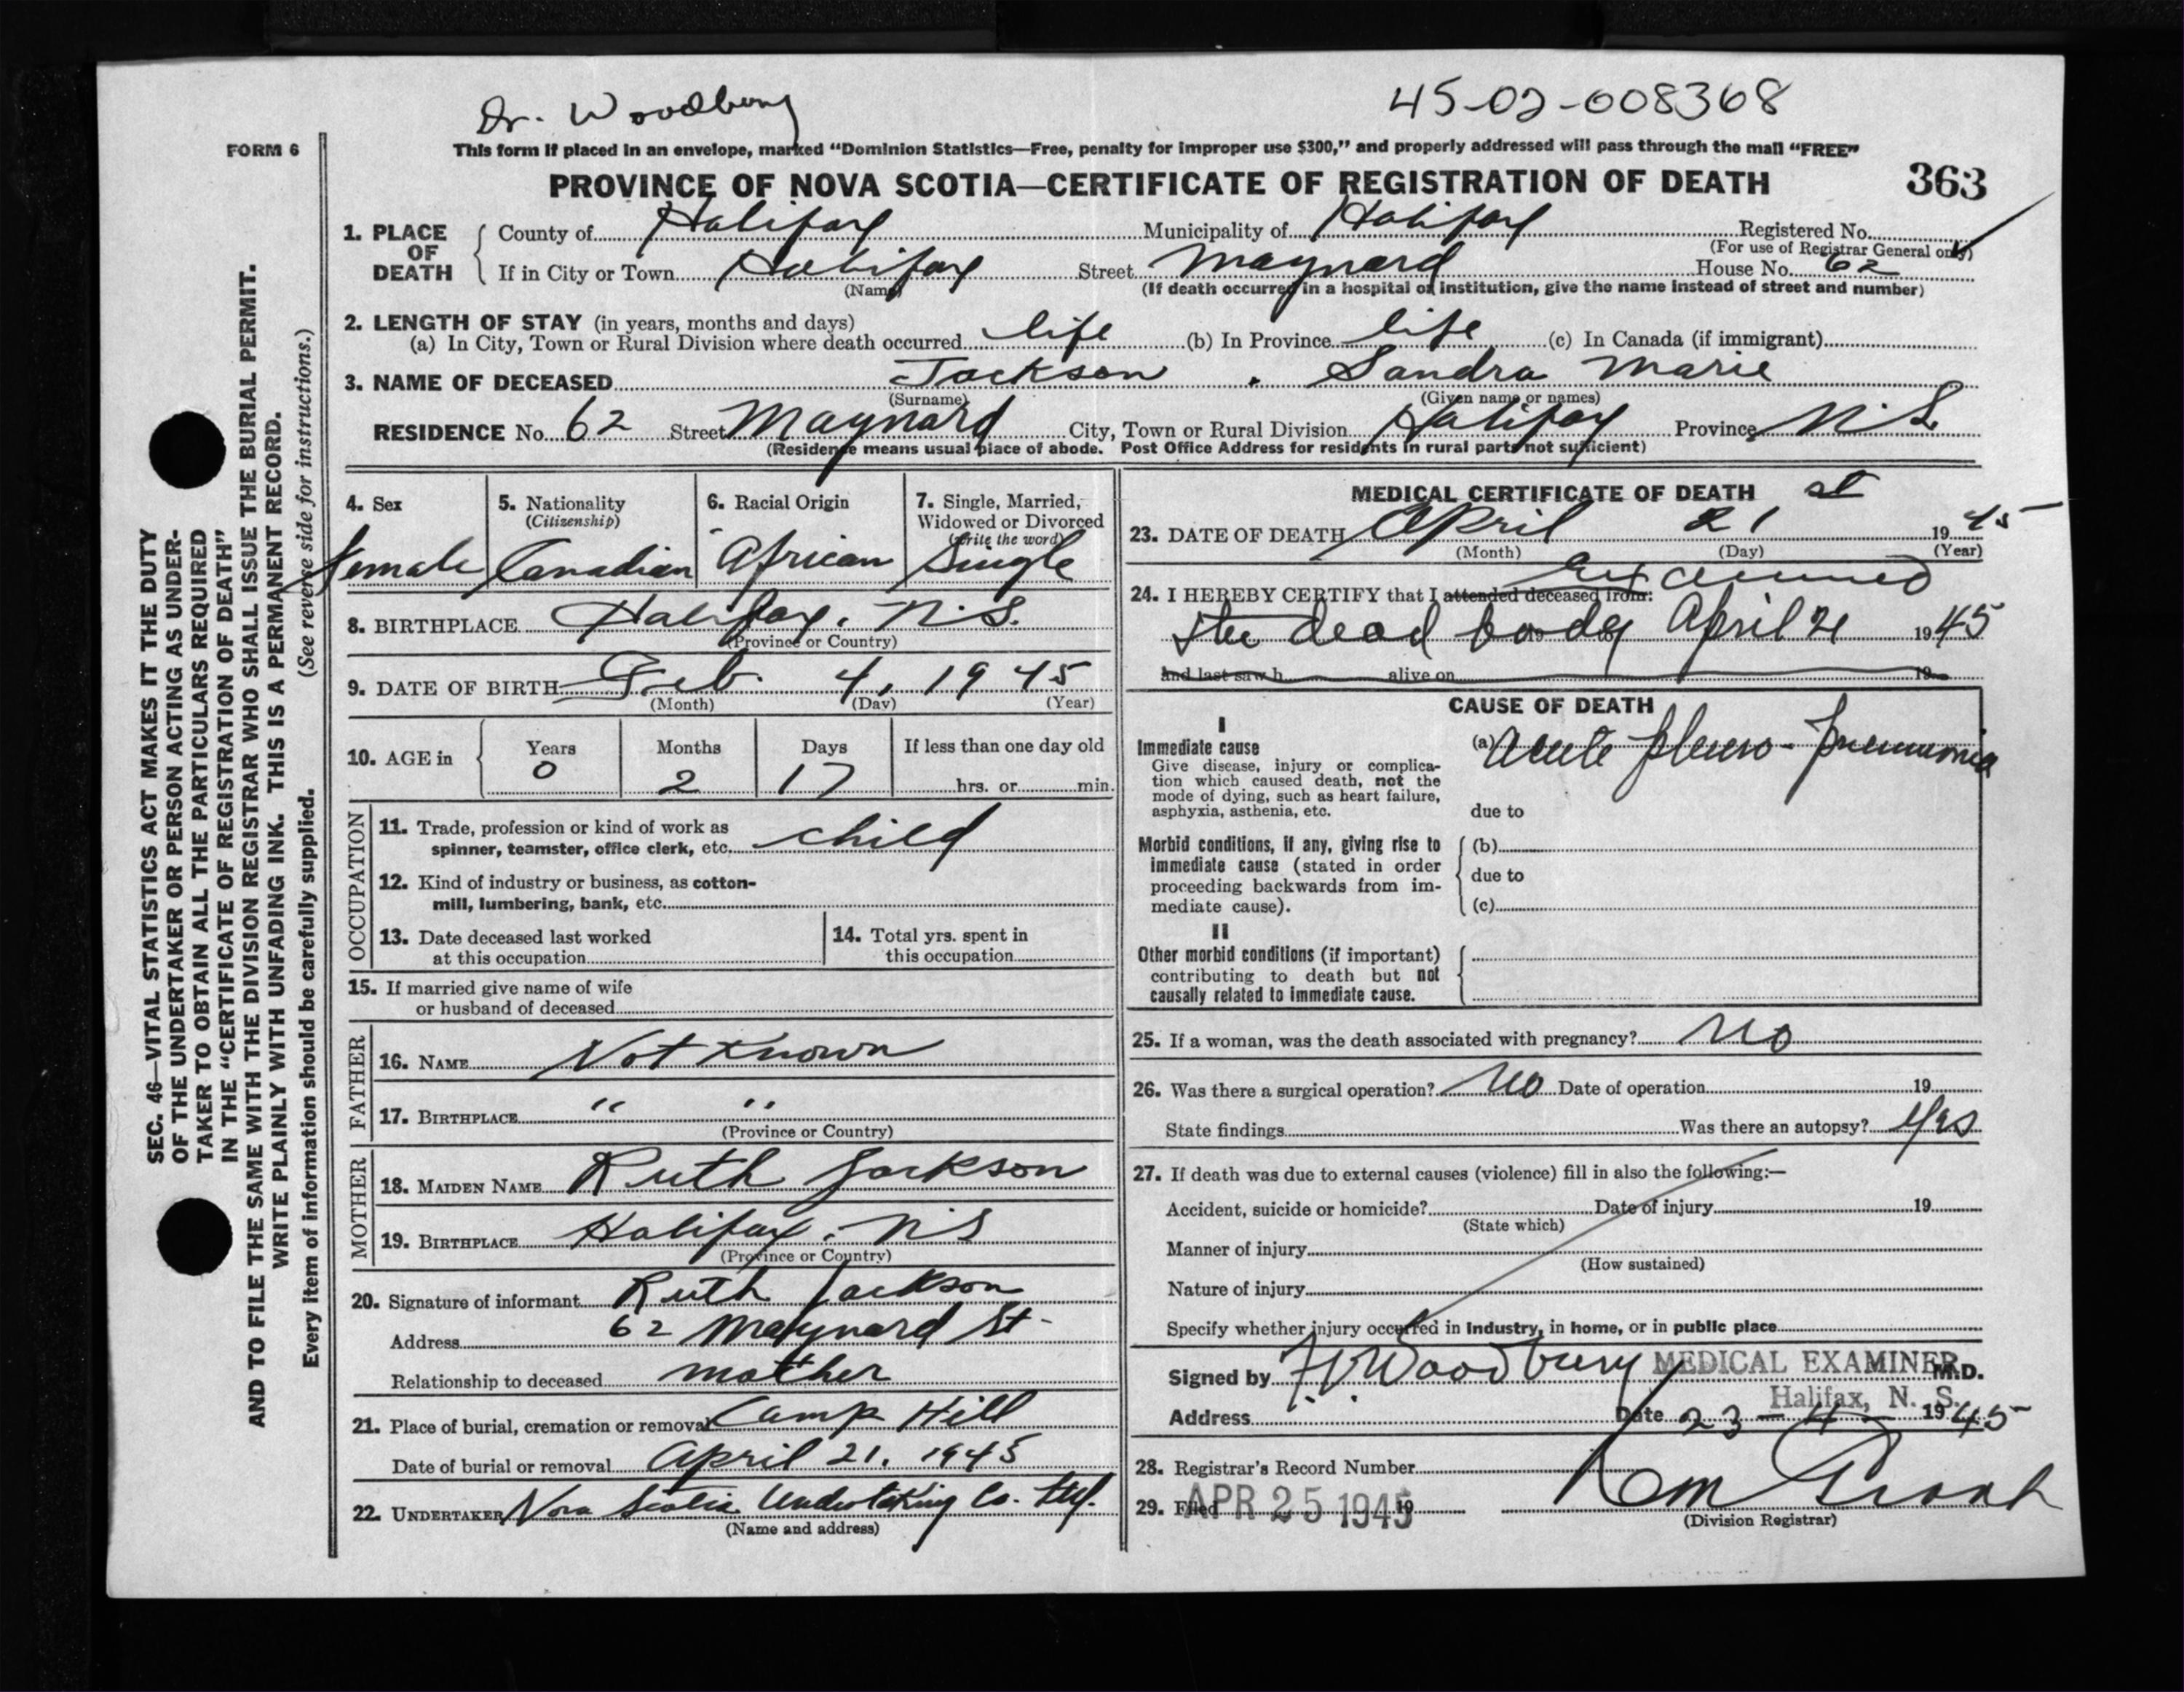 Dr. Woodbury
45-02-008368
FORM 6
This form if placed in an envelope, marked “Dominion Statistics—Free, penalty for improper use $300,” and properly addressed will pass through the mail “FREE”
PROVINCE OF NOVA SCOTIA—CERTIFICATE OF REGISTRATION OF DEATH
363
1. PLACE OF DEATH
County of Halifax Municipality of Halifax Registered No.
(For use of Registrar General only)
If in City or Town Halifax Street Maynard House No. 62
(Name) (If death occurred in a hospital or institution, give the name instead of street and number)
2. LENGTH OF STAY (in years, months and days)
(a) In City, Town or Rural Division where death occurred life (b) In Province life (c) In Canada (if immigrant)
3. NAME OF DECEASED Jackson. Sandra Marie
(Surname) (Given name or names)
RESIDENCE No. 62 Street Maynard City, Town or Rural Division Halifax Province N.S.
(Residence means usual place of abode. Post Office Address for residents in rural parts not sufficient)
4. Sex
female
5. Nationality
(Citizenship)
Canadian
6. Racial Origin
African
7. Single, Married,
Widowed or Divorced
(Write the word)
Single
8. BIRTHPLACE Halifax, N.S.
(Province or Country)
9. DATE OF BIRTH Feb. 4, 1945
(Month) (Day) (Year)
10. AGE in
Years Months Days If less than one day old
0 2 17 hrs. or min.
OCCUPATION
11. Trade, profession or kind of work as
spinner, teamster, office clerk, etc. child
12. Kind of industry or business, as cotton-
mill, lumbering, bank, etc.
13. Date deceased last worked
at this occupation
14. Total yrs. spent in
this occupation
15. If married give name of wife
or husband of deceased
FATHER
16. NAME Not Known
17. BIRTHPLACE " "
(Province or Country)
MOTHER
18. MAIDEN NAME Ruth Jackson
19. BIRTHPLACE Halifax, N S
(Province or Country)
20. Signature of informant Ruth Jackson
Address 62 Maynard St-
Relationship to deceased mother
21. Place of burial, cremation or removal Camp Hill
Date of burial or removal April 21, 1945
22. UNDERTAKER Nova Scotia Undertaking Co. Ltd.
(Name and address)
MEDICAL CERTIFICATE OF DEATH
23. DATE OF DEATH April 21st 1945
(Month) (Day) (Year)
24. I HEREBY CERTIFY that I attended deceased from: examined
the dead body April 21 1945
And last saw h alive on 19
CAUSE OF DEATH
I
Immediate cause
Give disease, injury or complica-
tion which caused death, not the
mode of dying, such as heart failure,
asphyxia, asthenia, etc.
(a) Acute pleuro-pneumonia
due to
Morbid conditions, if any, giving rise to
immediate cause (stated in order
proceeding backwards from im-
mediate cause).
(b)
due to
(c)
II
Other morbid conditions (if important)
contributing to death but not
causally related to immediate cause.
25. If a woman, was the death associated with pregnancy? No
26. Was there a surgical operation? No Date of operation 19
State findings Was there an autopsy? Yes
27. If death was due to external causes (violence) fill in also the following:—
Accident, suicide or homicide? Date of injury 19
(State which)
Manner of injury
(How sustained)
Nature of injury
Specify whether injury occurred in industry, in home, or in public place
Signed by Woodbury MEDICAL EXAMINER M.D.
Halifax, N. S.
Address Date 23-4- 1945
28. Registrar's Record Number
29. Filed APR 25 1945 19
(Division Registrar)
SEC. 46—VITAL STATISTICS ACT MAKES IT THE DUTY
OF THE UNDERTAKER OR PERSON ACTING AS UNDER-
TAKER TO OBTAIN ALL THE PARTICULARS REQUIRED
IN THE “CERTIFICATE OF REGISTRATION OF DEATH”
AND TO FILE THE SAME WITH THE DIVISION REGISTRAR WHO SHALL ISSUE THE BURIAL PERMIT.
WRITE PLAINLY WITH UNFADING INK. THIS IS A PERMANENT RECORD.
Every item of information should be carefully supplied. (See reverse side for instructions.)